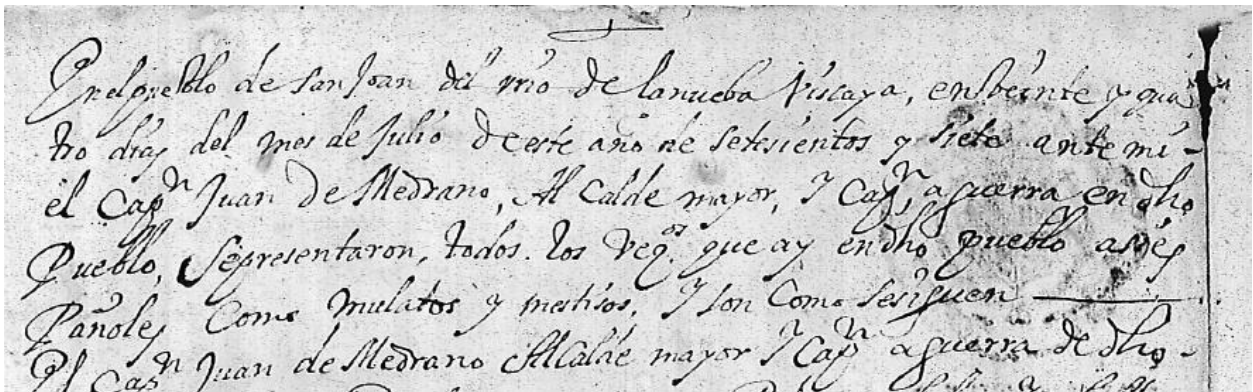 En el pueblo de san Joan del rrio de la nueba Viscaya, en beinte y qua
tro dias del mes de Julio de este año de setesientos y siete ante mi
el Cap.n Juan De Medrano, Alcalde mayor, y Cap.n a guerra en dho
Pueblo, se presentaron, todos los Veqos que ay en dho pueblo asi es
Pañoles Como mulatos y mestisos, y son Como se siguen
El Cap.n Juan de Medrano Alcalde mayor y Cap.n a guerra de dho